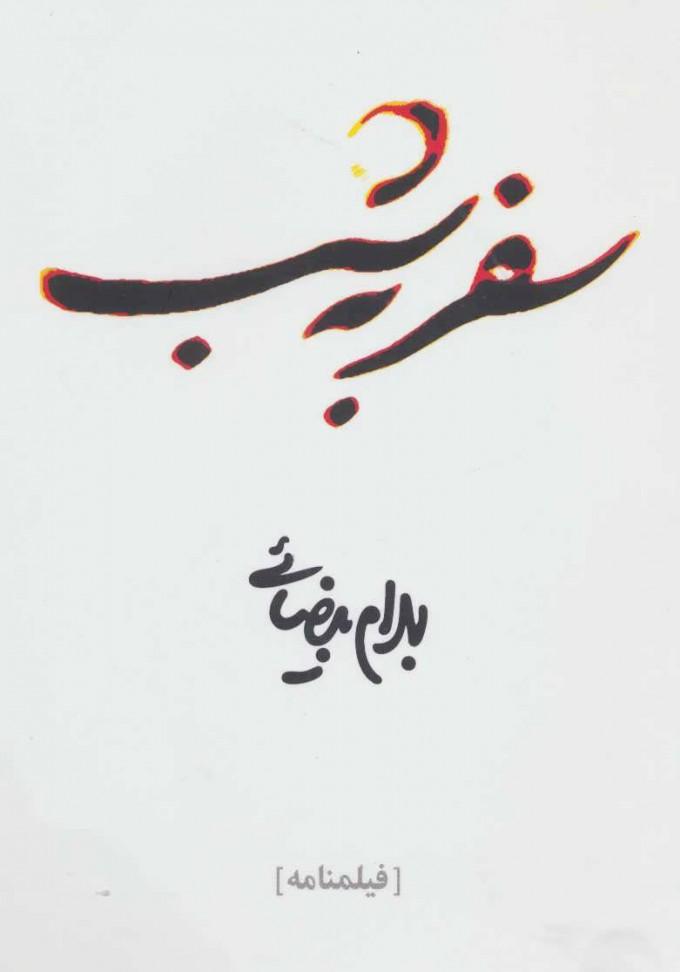 سفر به شب
بهرام بیضائی
[فیلمنامه]